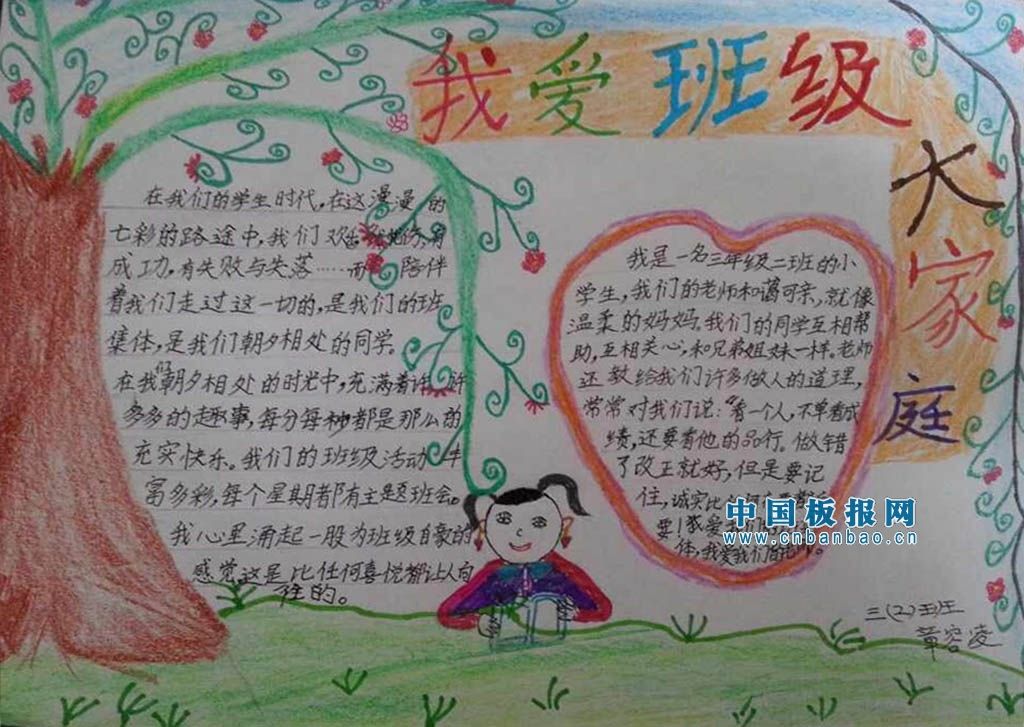 我爱班级
大
家
庭
在我们的学生时代,在这漫漫的
七彩的路途中,我们欢
成功,有失败与失落……而 陪伴
着我们走过这一切的,是我们的班
集体,是我们朝夕相处的同学。
在我们朝夕相处的时光中,充满着许许
多多的趣事,每分每秒都是那么的
充实快乐。我们的班级活动丰
富多彩,每个星期都有主题班会。
我心里涌起一股为班级自豪的
感觉这是比任何喜悦都让人向
往的。
我是一名三年级二班的小
学生,我们的老师和蔼可亲,就像
温柔的妈妈。我们的同学互相帮
助,互相关心,和兄弟姐妹一样。老师
还教给我们许多做人的道理,
常常对我们说:“看一个人,不单看成
绩,还要看他的品行。做错
了改正就好,但是要记
住,诚实比
要!我爱我们
体,我爱我们
中国板报网
www.cnbanbao.cn
三(2)班